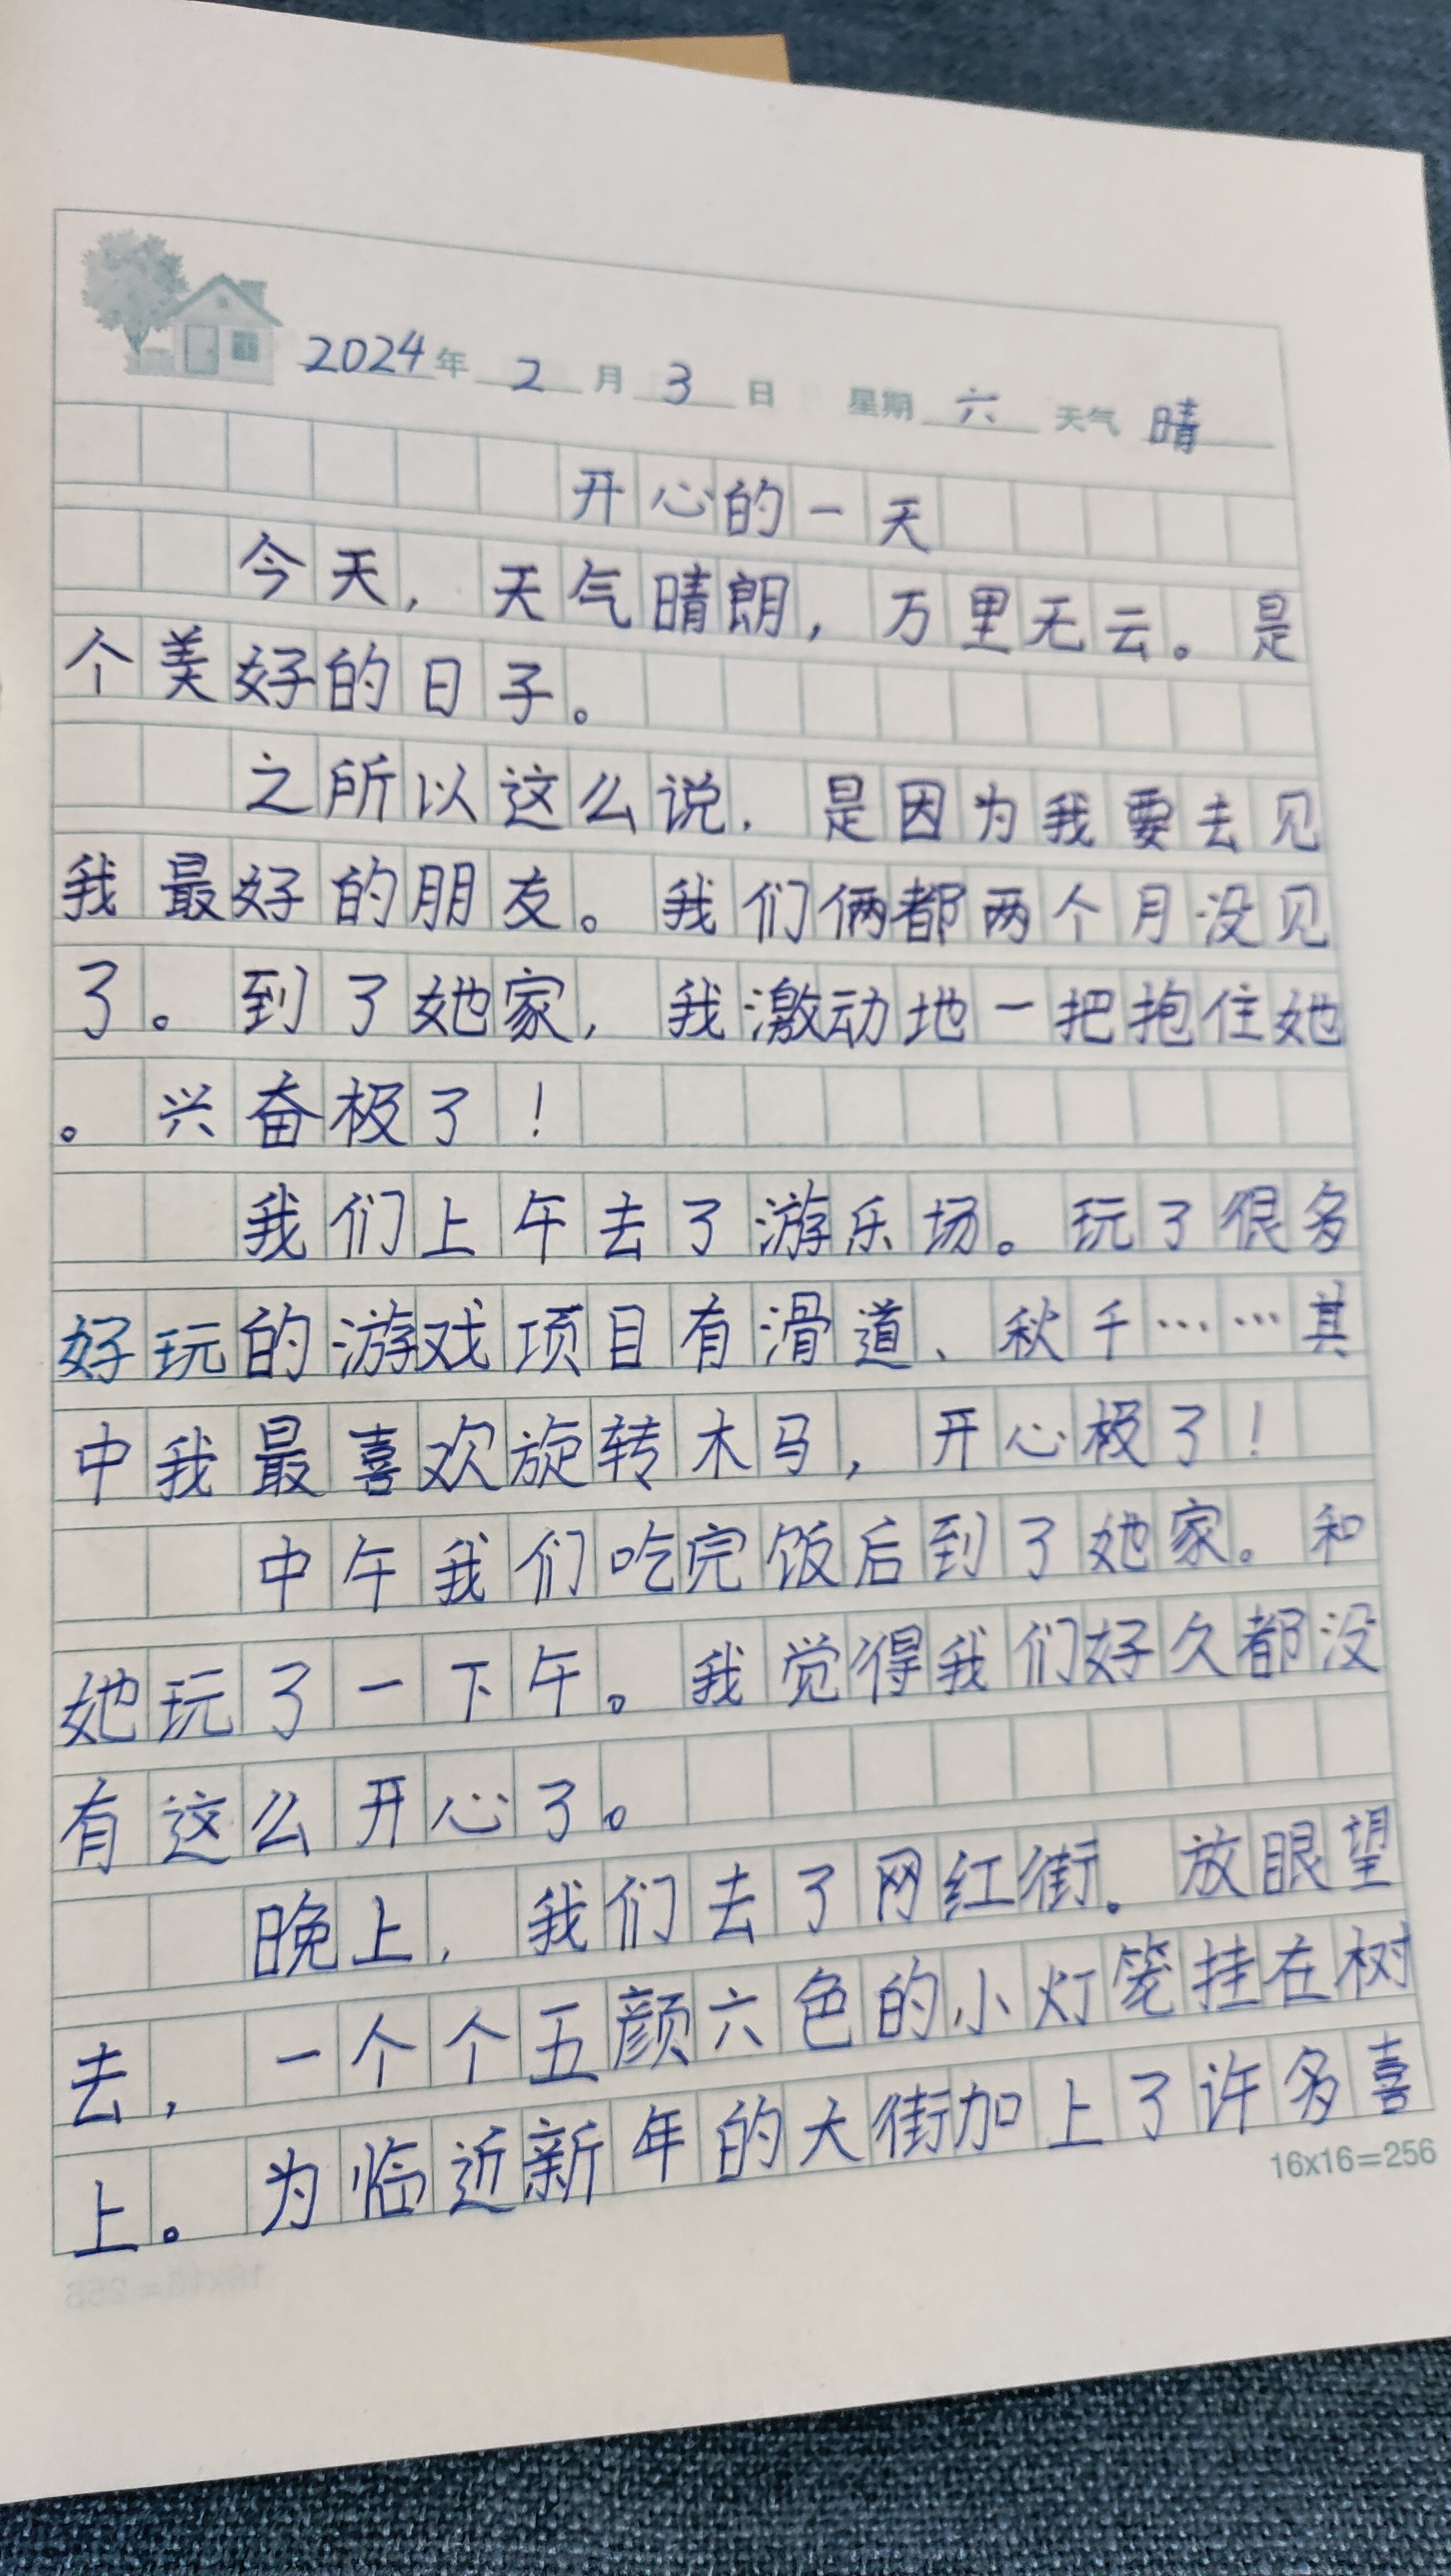 2024年2月3日 星期六 天气晴
开心的一天
今天，天气晴朗，万里无云。是
个美好的日子。
之所以这么说，是因为我要去见
我最好的朋友。我们俩都两个月没见
了。到了她家，我激动地一把抱住她
。兴奋极了！
我们上午去了游乐场。玩了很多
好玩的游戏项目有滑道、秋千……其
中我最喜欢旋转木马，开心极了！
中午我们吃完饭后到了她家。和
她玩了一下午。我觉得我们好久都没
有这么开心了。
晚上，我们去了网红街。放眼望
去，一个个五颜六色的小灯笼挂在树
上。为临近新年的大街加上了许多喜
16x16=256